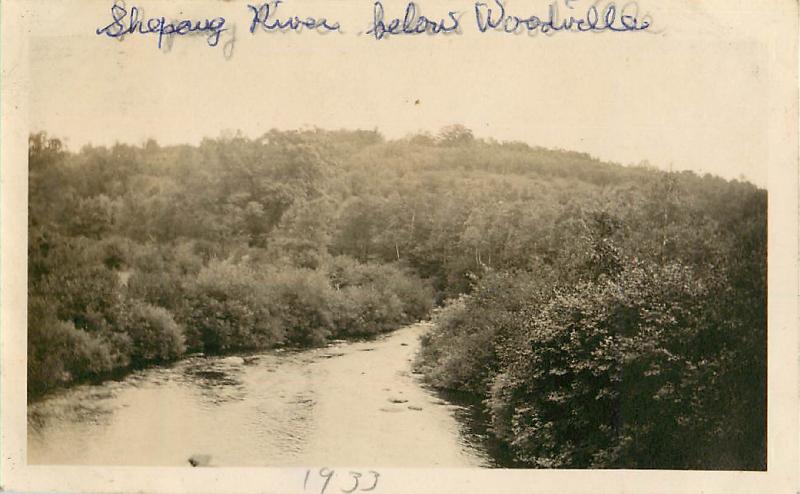 Shepaug River below Woodville
1933